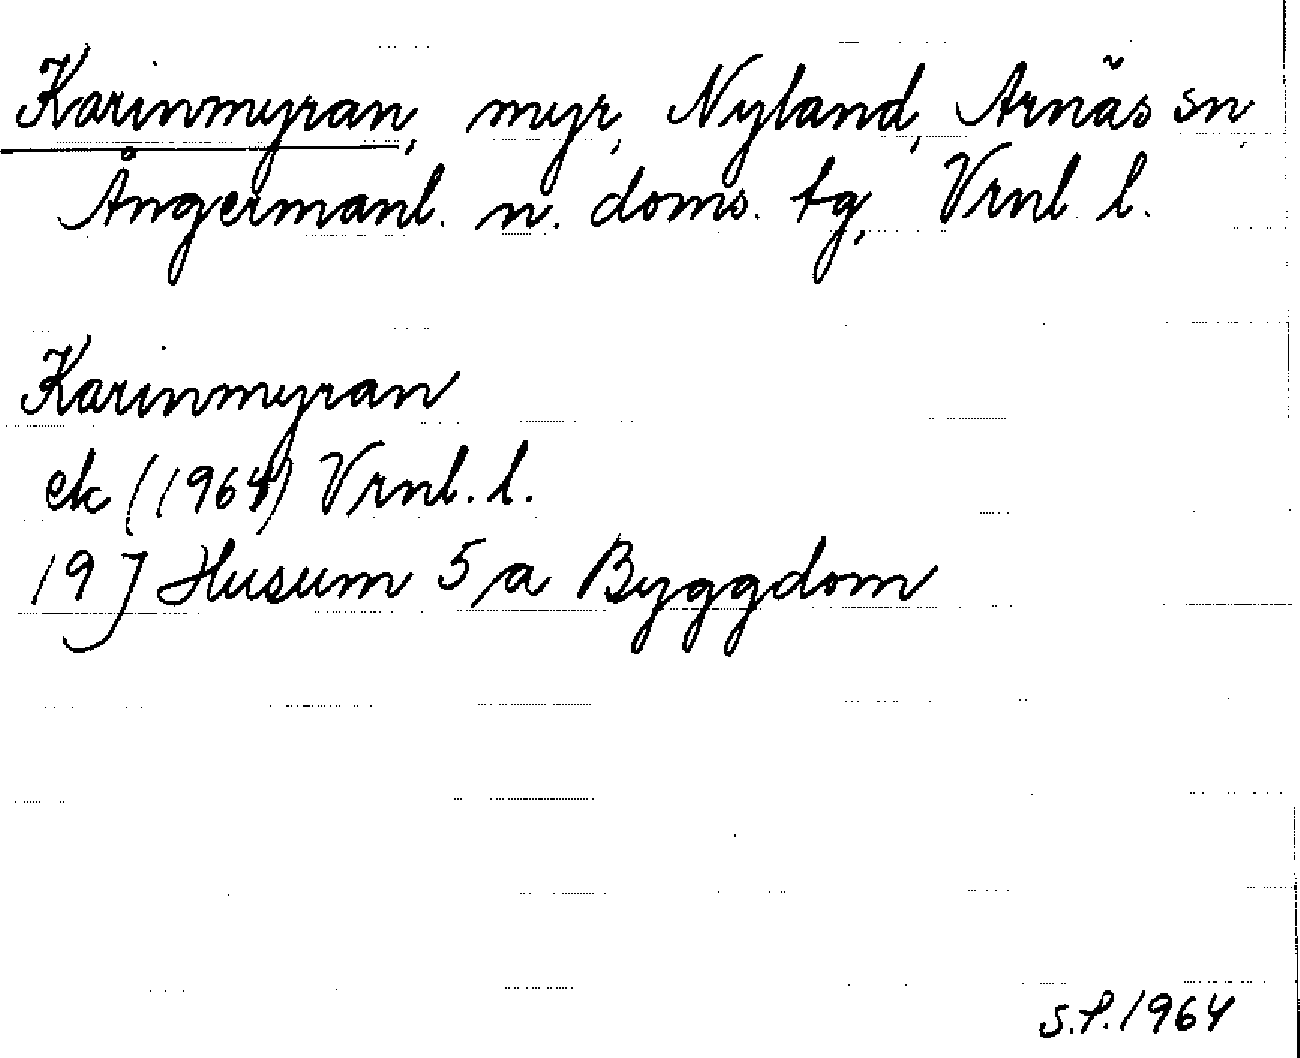 Karinmyran, myr, Nyland, Arnäs sn,
Ångermanl. n. doms. tg, Vrnl l.
Karinmyran
ek (1964) Vrnl. l.
19 J Husum 5 a Byggdom
S.P. 1964